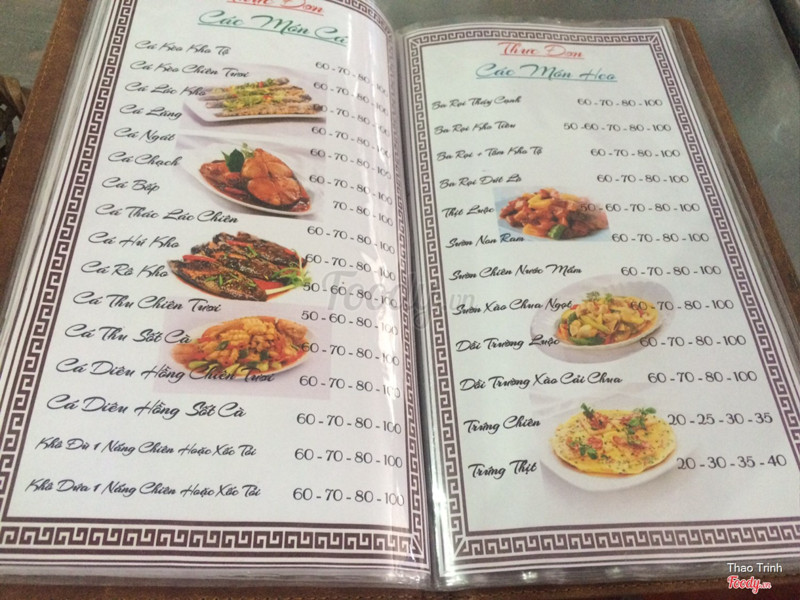 Thực Đơn
Các Món Cá
Cá Kèo Kho Tộ 60 - 70 - 80 - 100
Cá Kèo Chiên Tươi 60 - 70 - 80 - 100
Cá Lóc Kho 60 - 70 - 80 - 100
Cá Lăng 60 - 70 - 80 - 100
Cá Ngát 60 - 70 - 80 - 100
Cá Chạch 60 - 70 - 80 - 100
Cá Bốp 70 - 80 - 100
Cá Thác Lác Chiên 60 - 70 - 80 - 100
Cá Hú Kho 60 - 70 - 80 - 100
Cá Rô Kho 50 - 60 - 80 - 100
Cá Thu Chiên Tươi 50 - 60 - 80 - 100
Cá Thu Sốt Cà 60 - 70 - 80 - 100
Cá Diêu Hồng Chiên Tươi 60 - 70 - 80 - 100
Cá Diêu Hồng Sốt Cà 60 - 70 - 80 - 100
Khô Dù 1 Nắng Chiên Hoặc Xốc Tỏi 60 - 70 - 80 - 100
Khô Dứa 1 Nắng Chiên Hoặc Xốc Tỏi 60 - 70 - 80 - 100
Thực Đơn
Các Món Heo
Ba Rọi Tháy Cạnh 60 - 70 - 80 - 100
Ba Rọi Kho Tiêu 50 - 60 - 70 - 80 - 100
Ba Rọi + Tôm Kho Tộ 60 - 70 - 80 - 100
Ba Rọi Dốt Lò 60 - 70 - 80 - 100
Thịt Luộc 50 - 60 - 70 - 80 - 100
Sườn Non Ram 60 - 70 - 80 - 100
Sườn Chiên Nước Mắm 60 - 70 - 80 - 100
Sườn Xào Chua Ngọt 60 - 70 - 80 - 100
Dồi Trường Luộc 60 - 70 - 80 - 100
Dồi Trường Xào Cải Chua 60 - 70 - 80 - 100
Trứng Chiên 20 - 25 - 30 - 35
Trứng Thịt 20 - 30 - 35 - 40
Foody.vn
Thao Trinh
Foody.vn